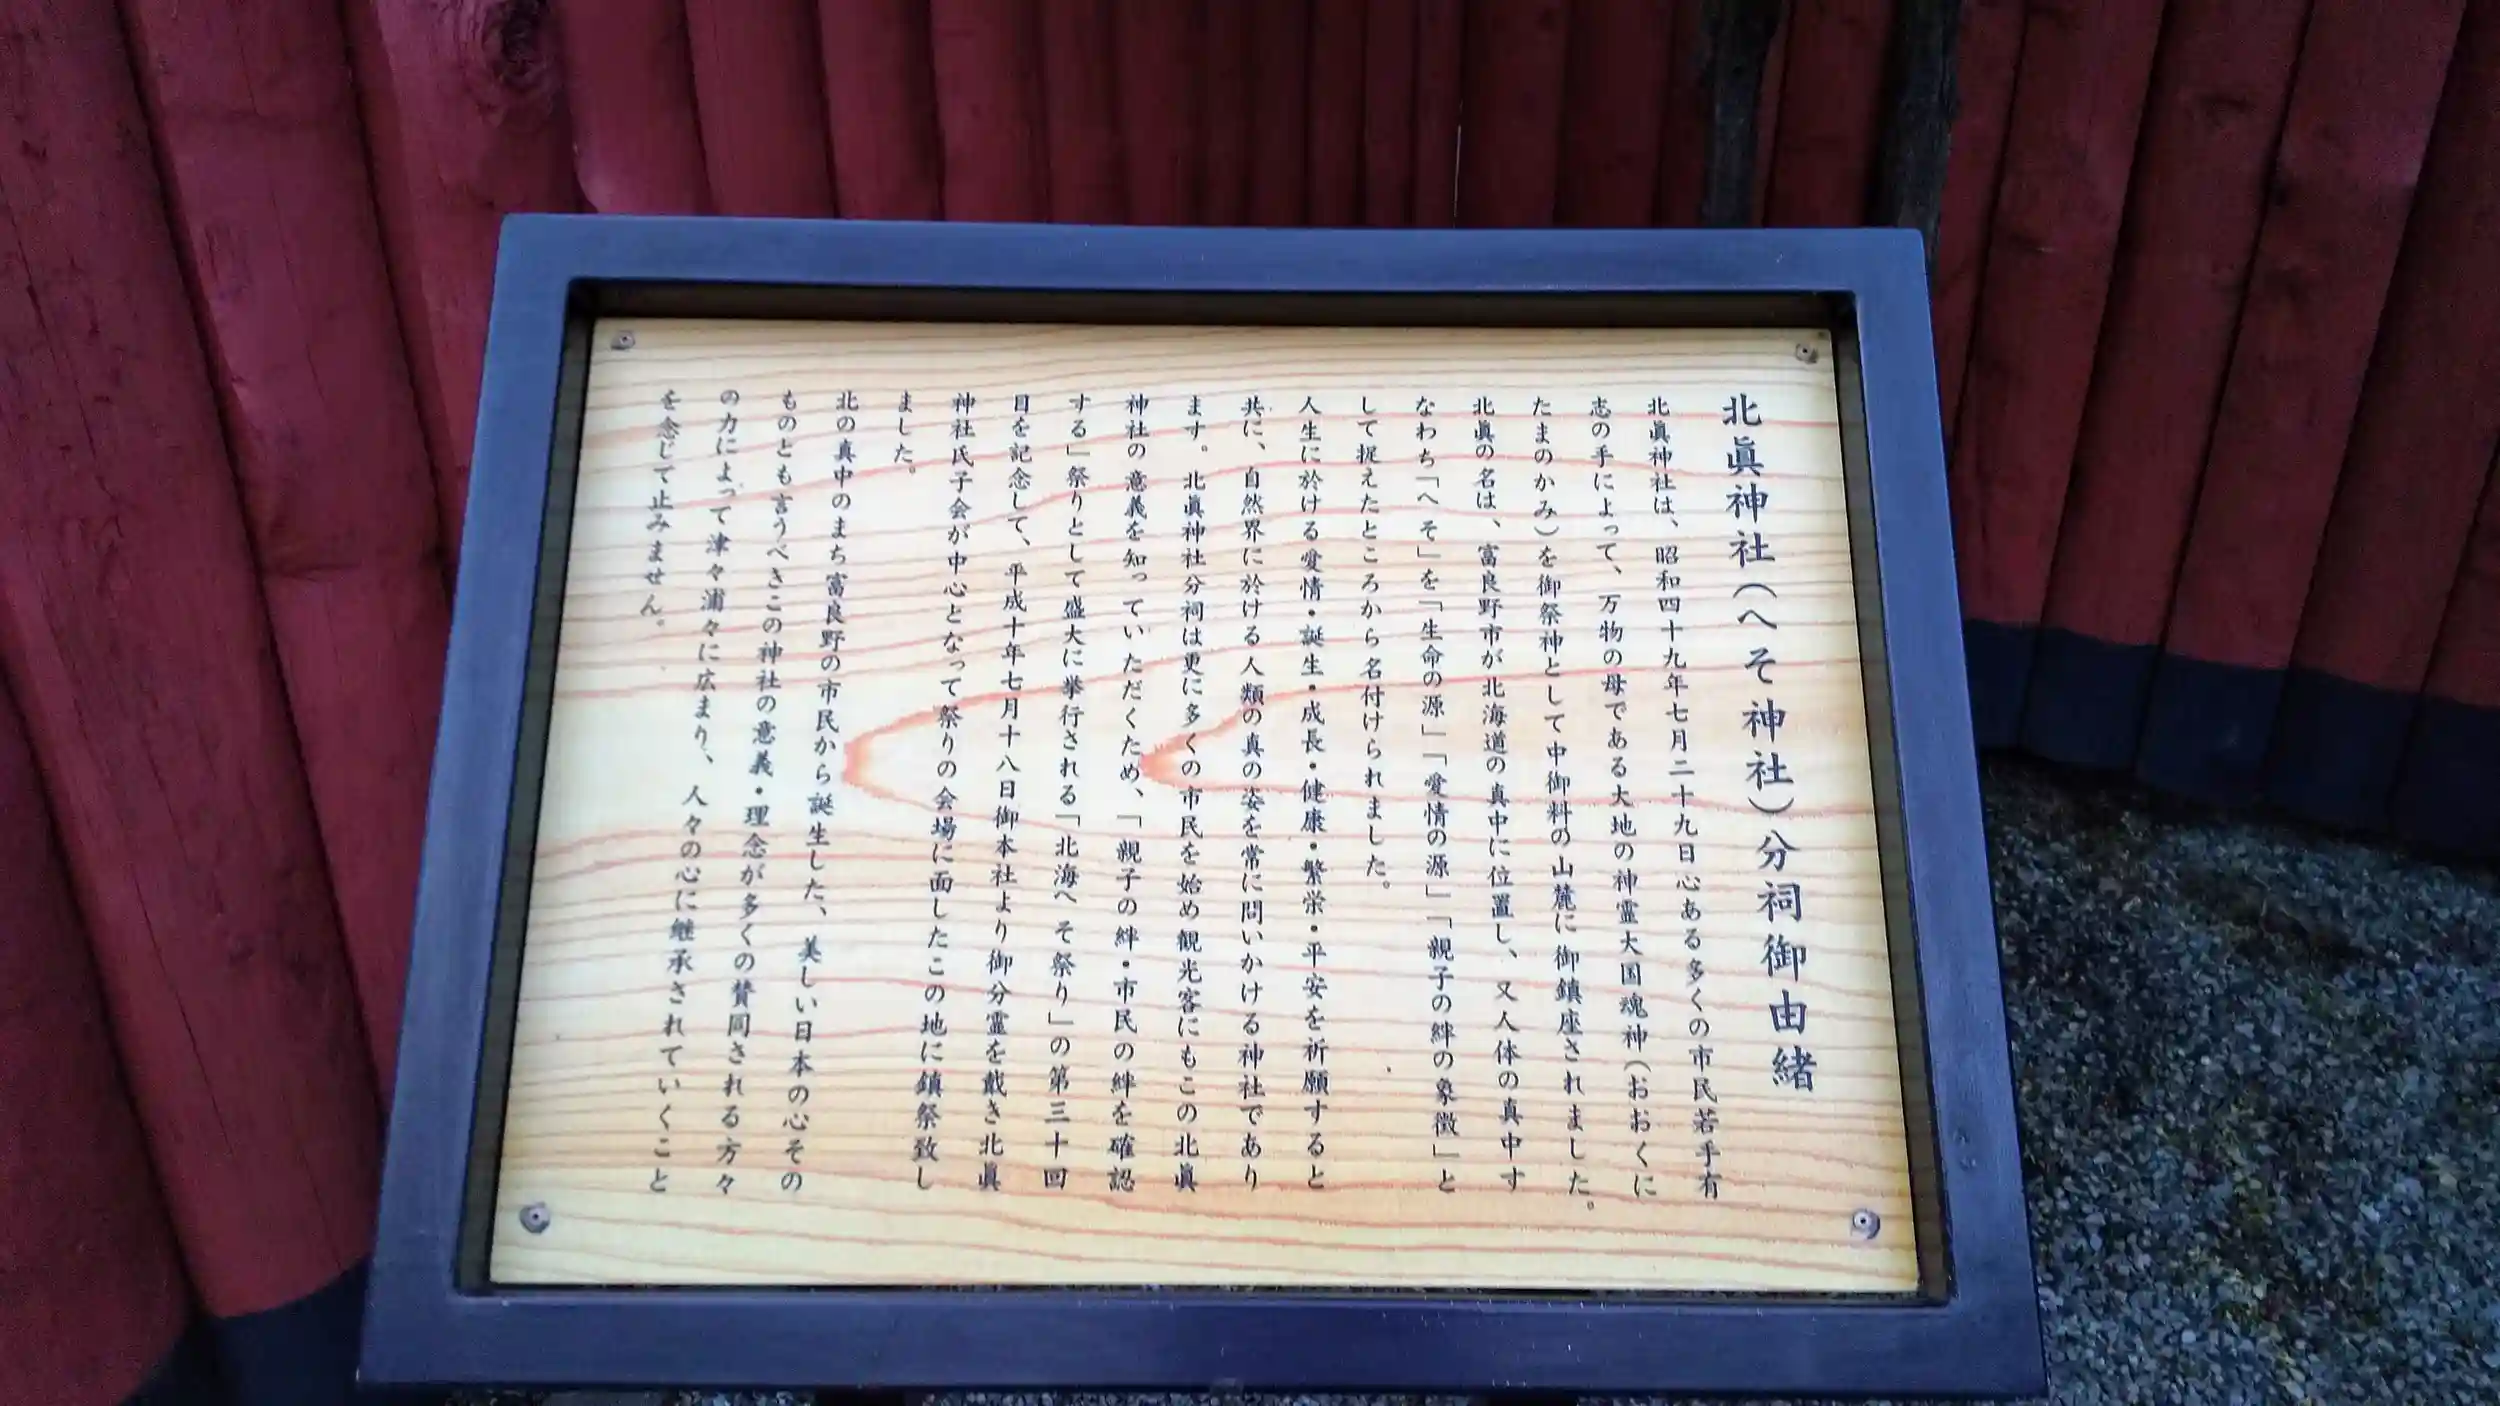 北眞神社（へそ神社）分祠御由緒
北眞神社は、昭和四十九年七月二十九日心ある多くの市民若手有
志の手によって、万物の母である大地の神霊大国魂神（おおくに
たまのかみ）を御祭神として中御料の山麓に御鎮座されました。
北眞の名は、富良野市が北海道の真中に位置し、又人体の真中す
なわち「へそ」を「生命の源」「愛情の源」「親子の絆の象徴」と
して捉えたところから名付けられました。
人生に於ける愛情・誕生・成長・健康・繁栄・平安を祈願すると
共に、自然界に於ける人類の真の姿を常に問いかける神社であり
ます。北眞神社分祠は更に多くの市民を始め観光客にもこの北眞
神社の意義を知っていただくため、「親子の絆・市民の絆を確認
する」祭りとして盛大に挙行される「北海へそ祭り」の第三十回
目を記念して、平成十年七月十八日御本社より御分霊を戴き北眞
神社氏子会が中心となって祭りの会場に面したこの地に鎮祭致し
ました。
北の真中のまち富良野の市民から誕生した、美しい日本の心その
ものとも言うべきこの神社の意義・理念が多くの賛同される方々
の力によって津々浦々に広まり、人々の心に継承されていくこと
を念じて止みません。